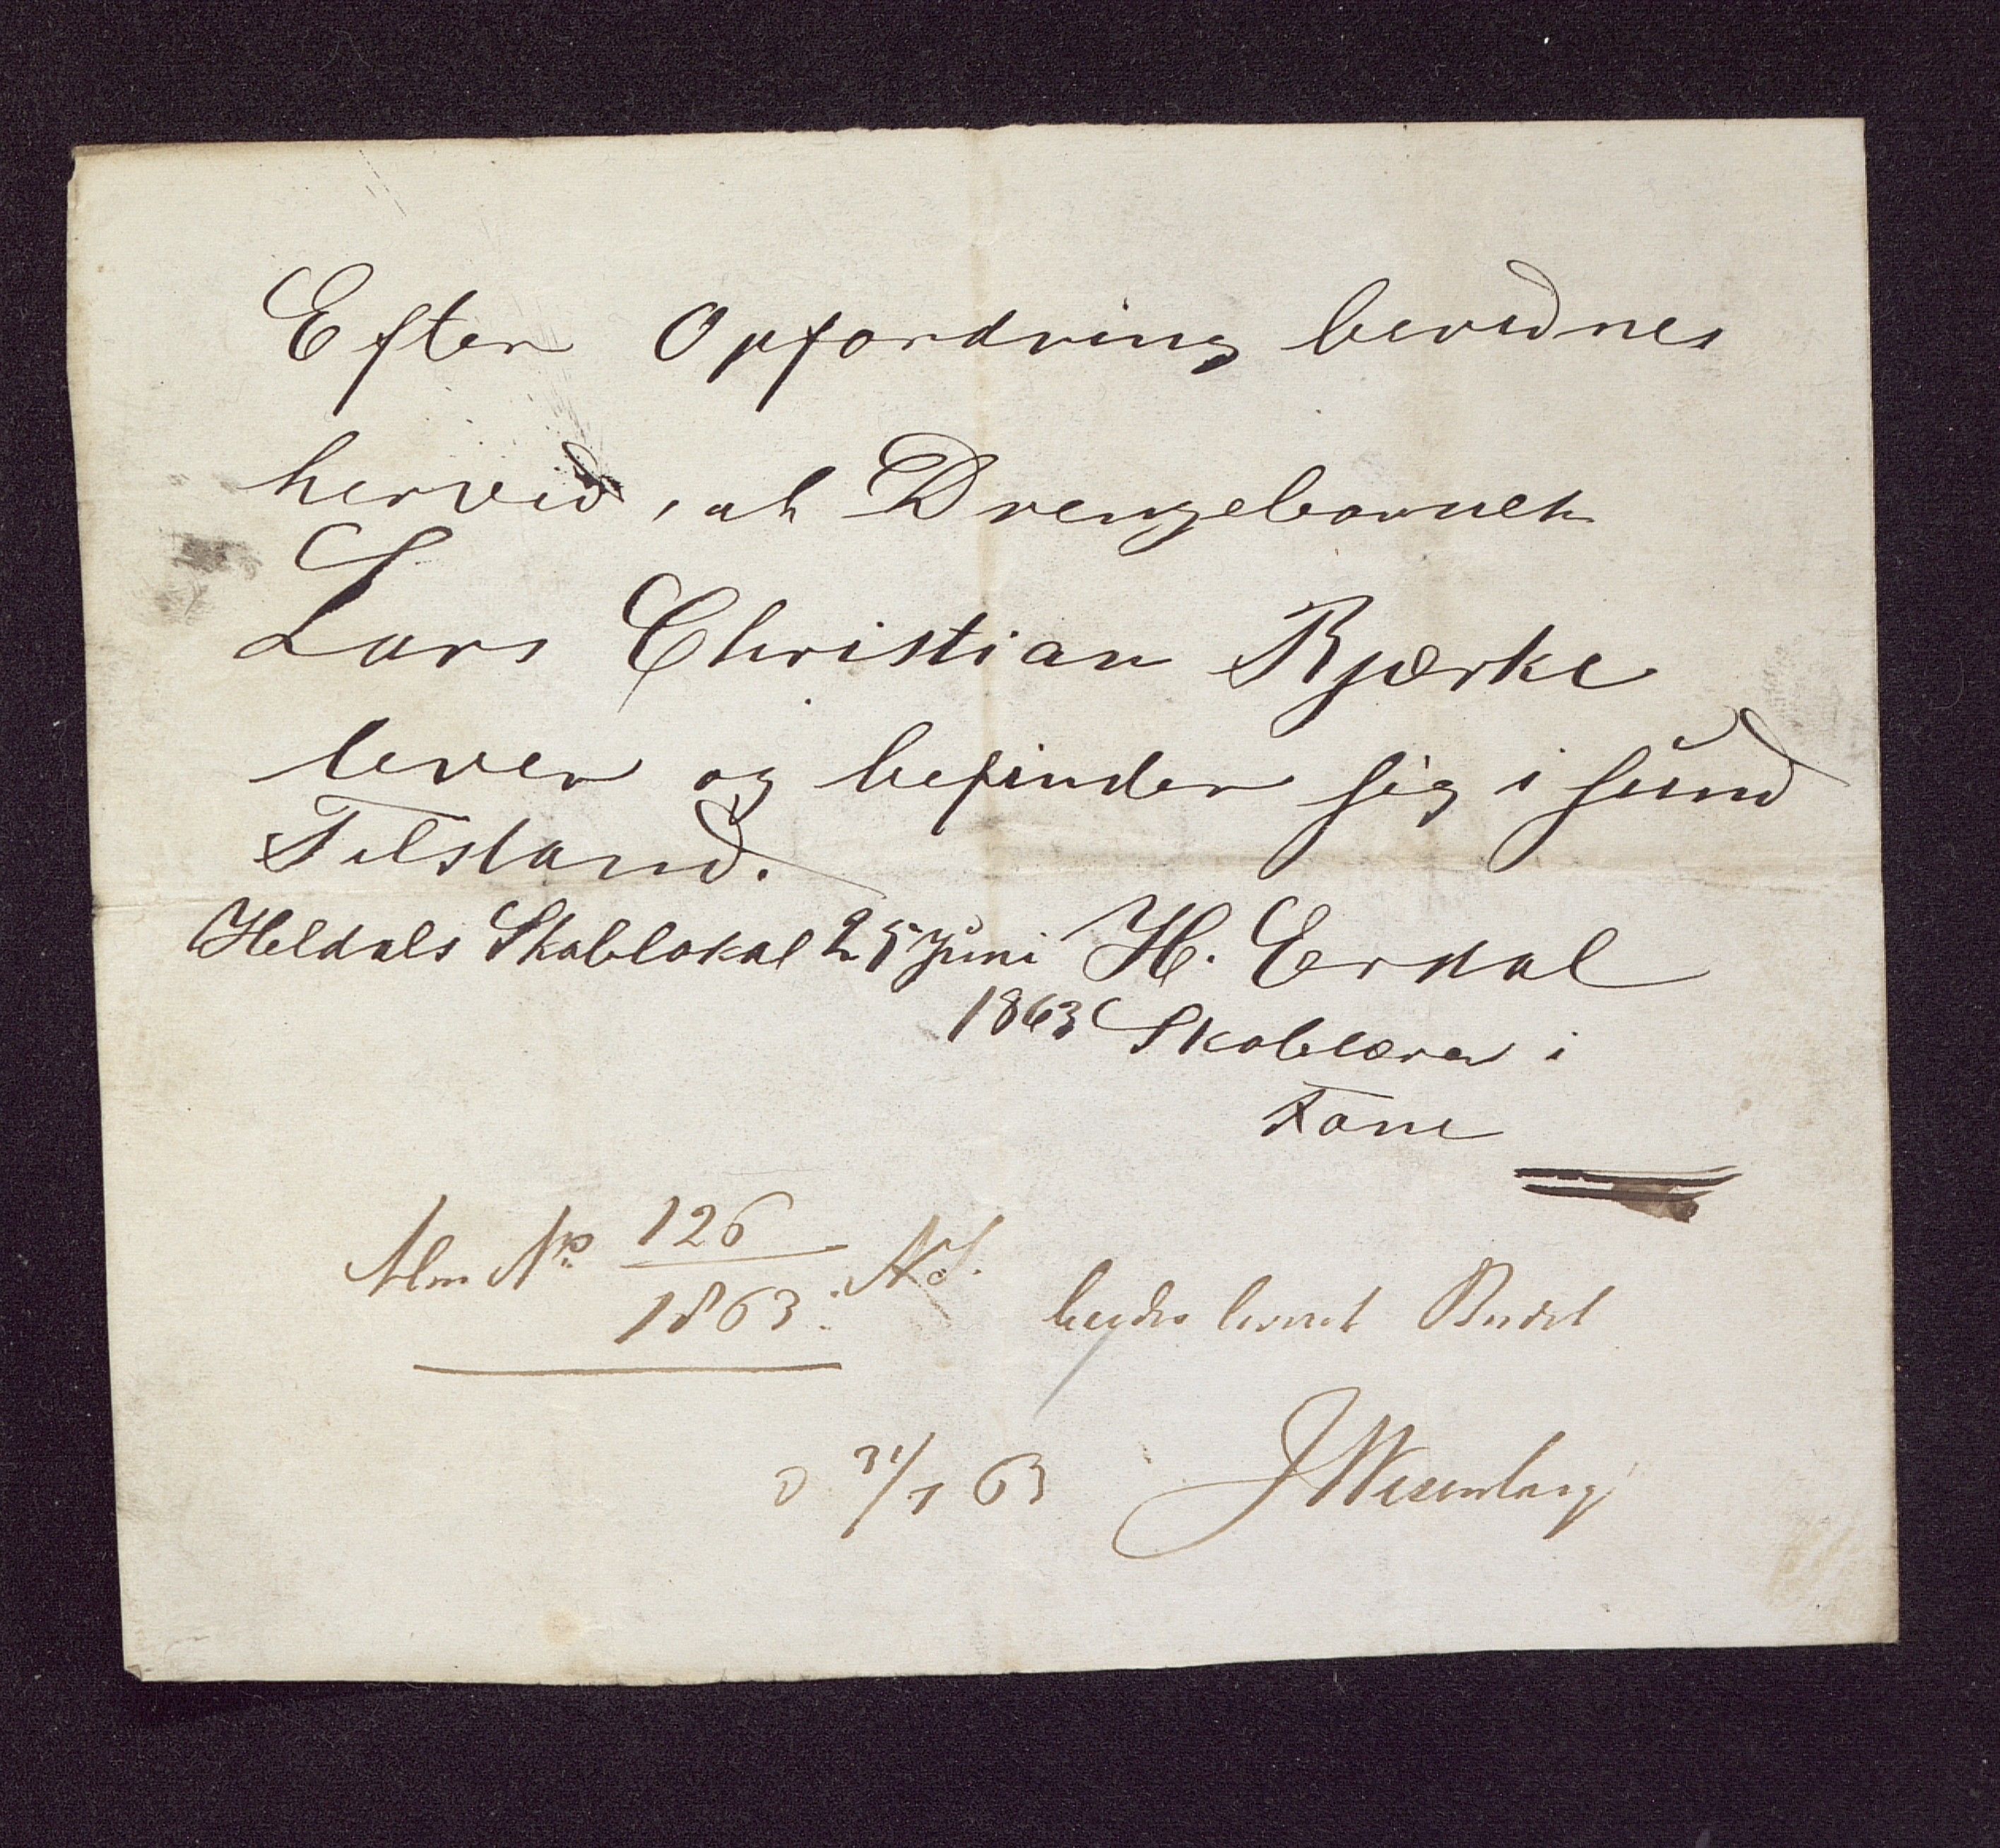 Efter Opfordring bevidnes
hervid, at Drengebarnet
Lars Christian Bjørke
lever og befinder sig i sund
Tilstand.
Heldals Skolelokal 25 Juni H. Erdal
1863 Skolelærer i
Fane
No 126
1863.
leveret Budet
31/7 63 J Wesenberg